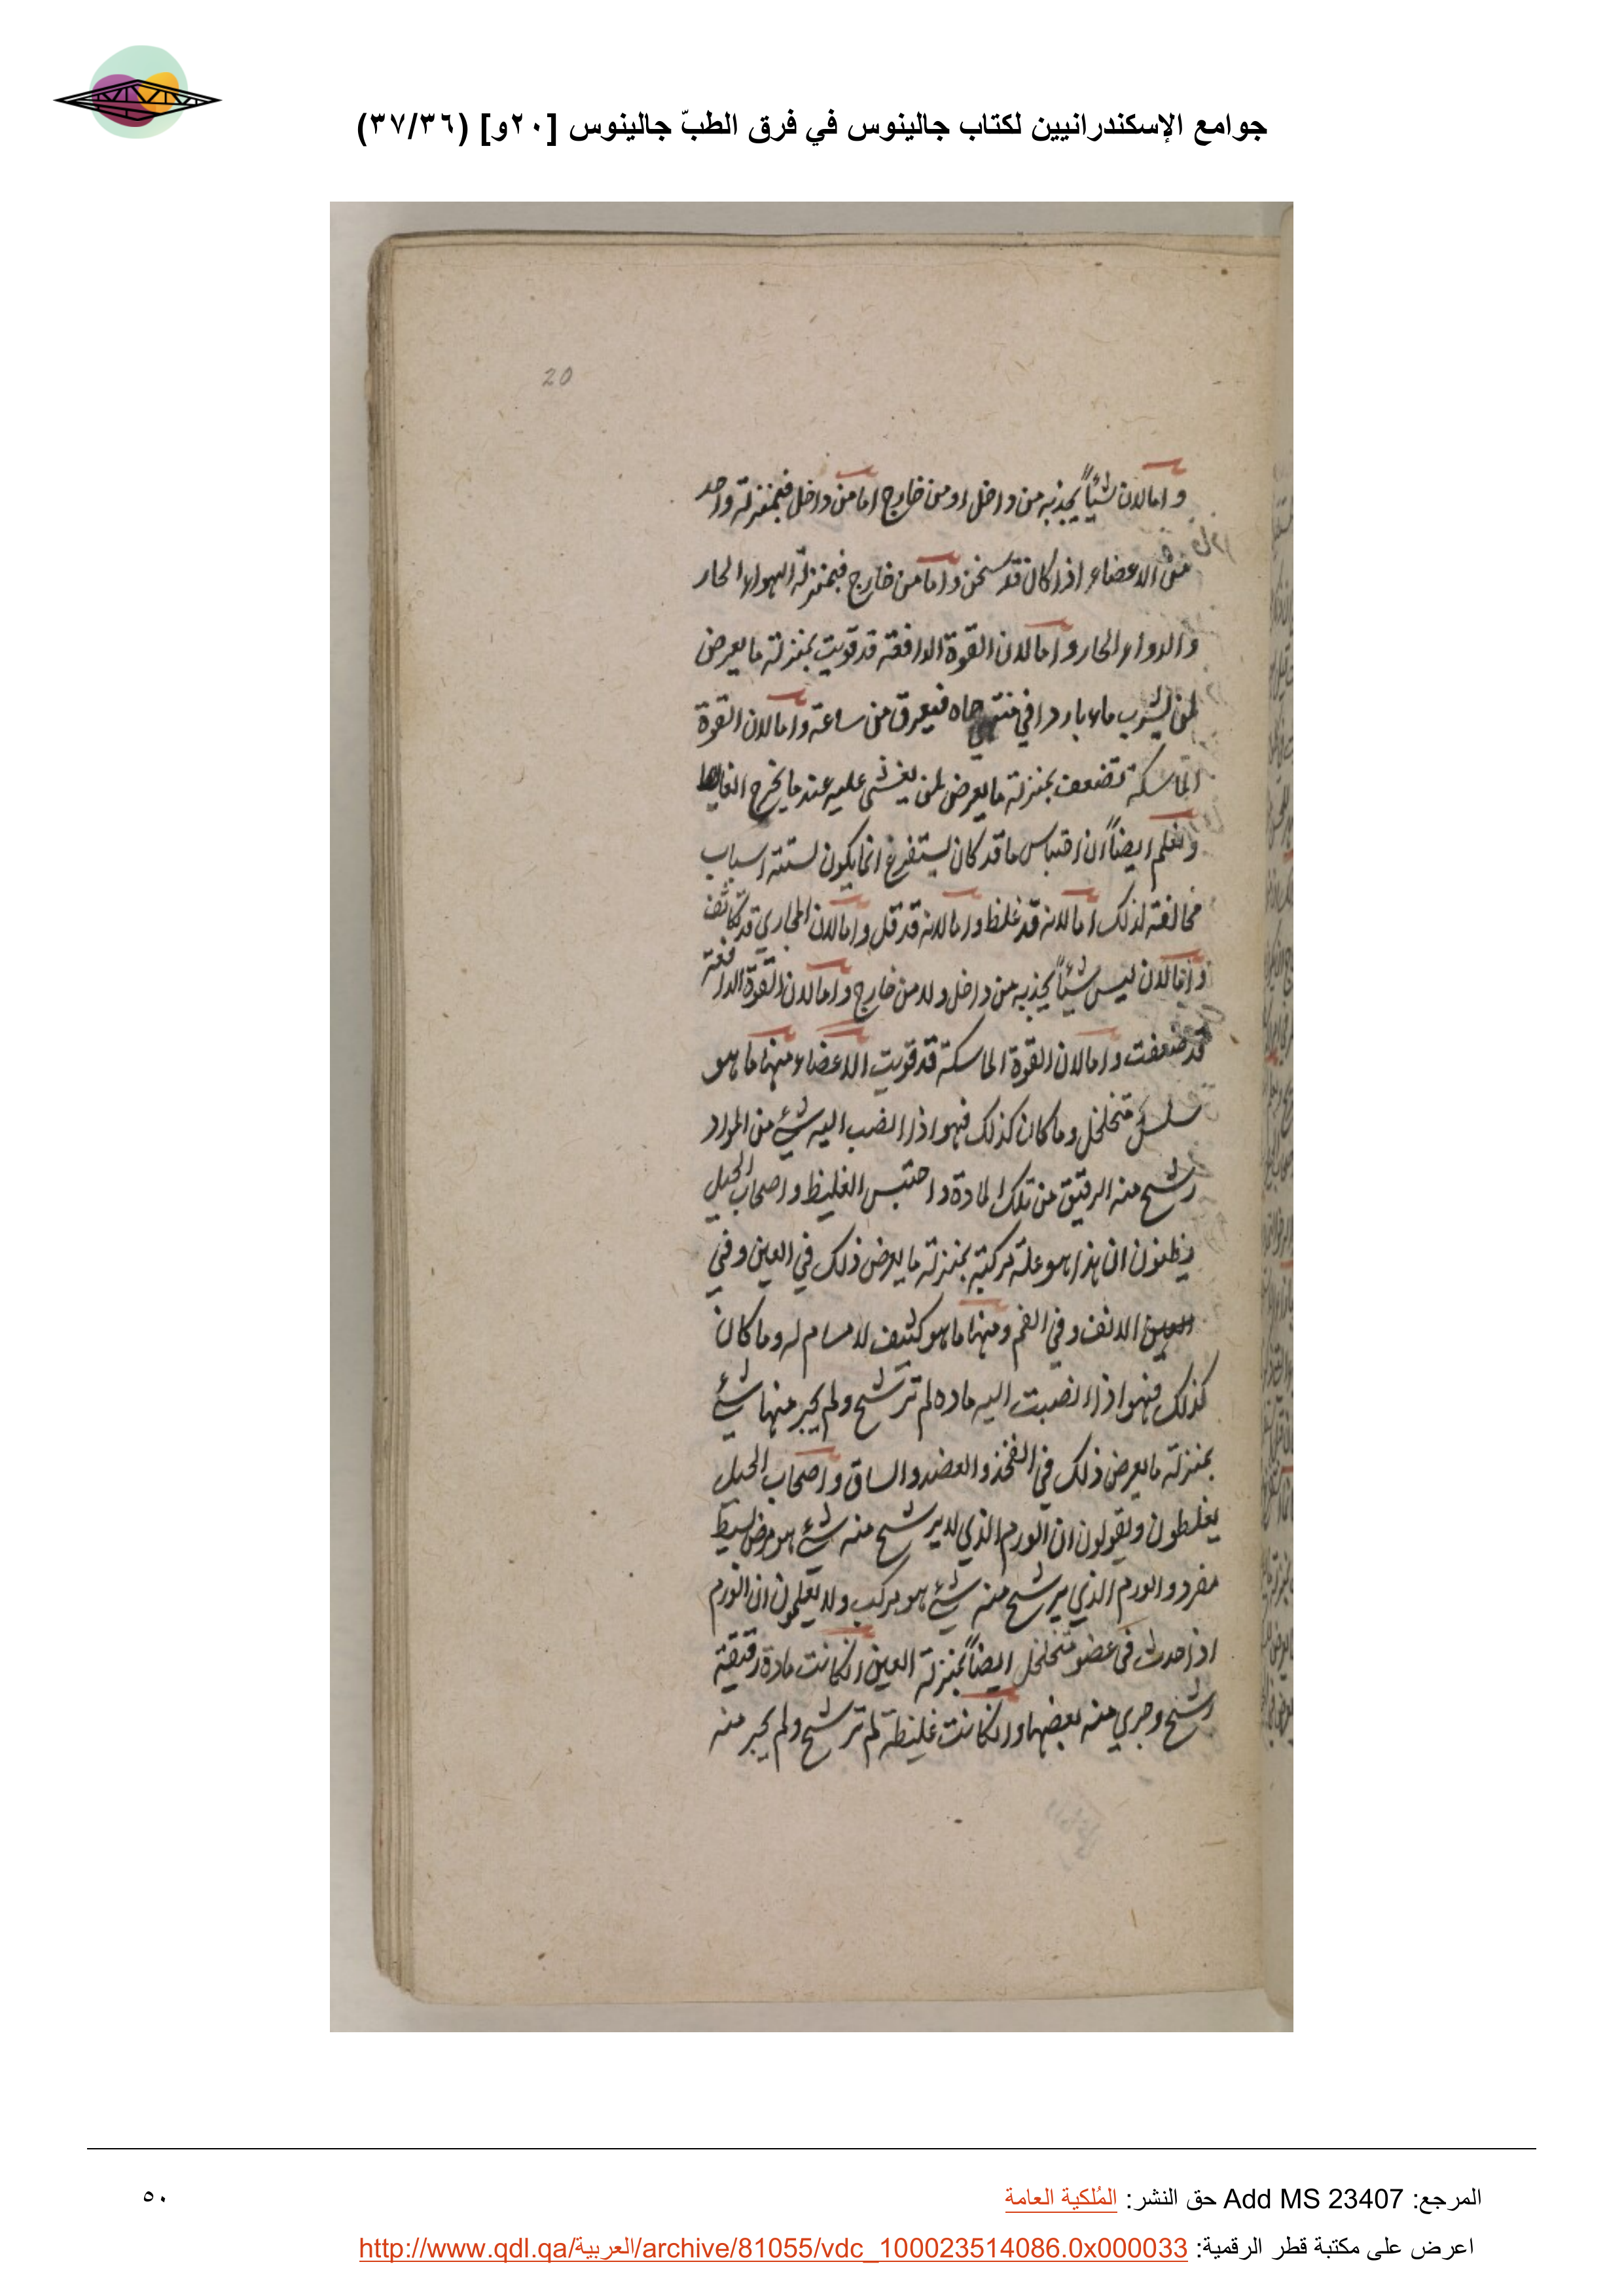 جوامع الإسكندرانيين لكتاب جالينوس في فرق الطبّ جالينوس [٢٠و] (٣٧/٣٦)
20
واما لان شئياً يجذبه من داخل او من خارج اما من داخل فبمنزلة واحد
من الاعضاء اذا كان قد سخن واما من خارج فبمنزلة الهواء الحار
والدواء الحار واما لان القوة الدافعة قد قويت بمنزلة ما يعرض
لمن يشرب ماء باردا في منتهى حماه فيعرق من ساعته واما لان القوة
الماسكة تضعف بمنزلة ما يعرض لمن يغشى عليه عند ما يخرج الغايط
ونعلم ايضاً ان احتباس ما قد كان يستفرغ انما يكون لستة اسباب
مخالفة لذلك اما لانه قد غلظ واما لانه قد قل واما لان المجاري قد تكاثف
واما لان ليس شيئاً يجذبه من داخل ولا من خارج واما لان القوة الدافعة
قد ضعفت واما لان القوة الماسكة قد قويت الاعضاء منها ما هو
سلس متخلخل وما كان كذلك فهو اذا انصب اليه شيء من المواد
رشح منه الرقيق من تلك المادة واحتبس الغليظ واصحاب الحيل
يظنون ان هذا هو علة مركبة بمنزلة ما يعرض ذلك في العين وفي
العين الانف وفي الفم ومنها ما هو كثيف لا مسام له وما كان
كذلك فهو اذا انصبت اليه ماده لم ترشح ولم يجر منها شيء
بمنزلة ما يعرض ذلك في الفخذ والعضد والساق واصحاب الحيل
يغلطون ويقولون ان الورم الذي لا يرشح منه شيء هو مرض بسيط
مفرد والورم الذي يرشح منه شيء هو مركب ولا يعلمون ان الورم
اذا حدث في عضو متخلخل ايضاً بمنزلة العين انكانت مادة رقيقة
رشح وجري منه بعضها وانكانت غليظة لم ترشح ولم يجر منه
المرجع: Add MS 23407 حق النشر: المُلكية العامة
٥٠
اعرض على مكتبة قطر الرقمية: http://www.qdl.qa/العربية/archive/81055/vdc_100023514086.0x000033